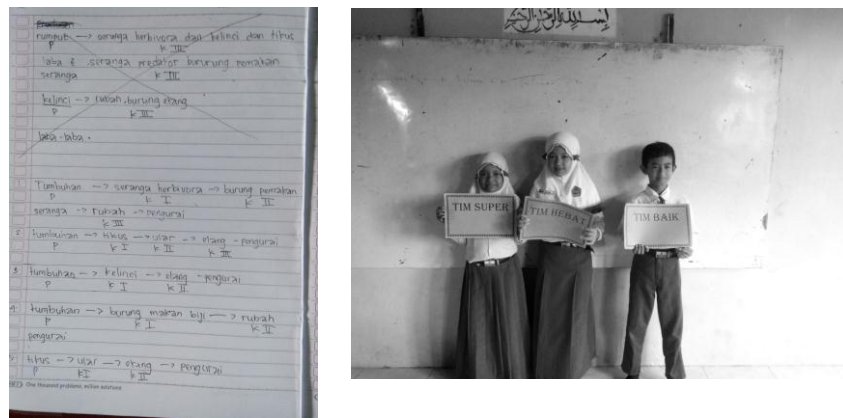 rumput -> seranga herbivora dan kelinci dan tikus
P K III
laba & seranga predator bururung pemakan
seranga K III
kelinci -> rubah, burung elang
P K III
laba-laba.
1 Tumbuhan -> seranga herbivora -> burung pemakan
P K I K II
seranga -> rubah -> pengurai
K III
2 tumbuhan -> tikus -> ular -> elang - pengurai
P K I K II K III
3 tumbuhan -> kelinci -> elang - pengurai
P K I K II
4 tumbuhan -> burung makan biji -> rubah
P K I K II
pengurai
5 tikus -> ular -> elang -> pengurai
P K I K II
One thousand problems, million solutions
TIM SUPER
TIM HEBAT
TIM BAIK